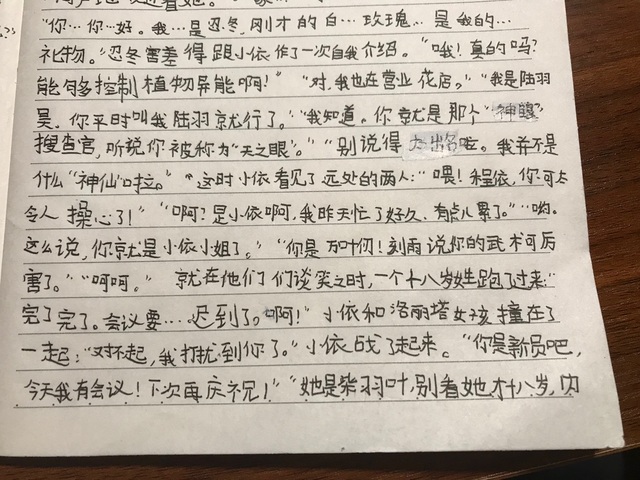 "你…你…好。我…是忍冬,刚才的白…玫瑰…是我的…
礼物。"忍冬害羞得跟小依作了一次自我介绍。"哦!真的吗?
能够多控制植物异能啊!""对,我也在营业花店。""我是陆羽
昊,你平时叫我陆羽就行了。""我知道。你就是那个"神瞳"
搜查官,听说你被称为"天之眼"。""别说得太出名啦。我并不是
什么"神仙"啦。""这时小依看见了远处的两人:"喂!程依,你可太
令人操心了!""啊?是小依啊,我昨天忙了好久、有点儿累了。""哟。
这么说,你就是小依小姐了。""你是万叶们!刻雨说你的武术可厉
害了。""呵呵。" 就在他们了们谈笑之时,一个十八岁女生跑了过来:"
完了完了。会议要……迟到了。啊!"小依和洛丽塔女孩撞在了
一起:"对不起,我打扰到你了。"小依站了起来。"你是新员吧,
今天我有会议!下次再庆祝!""她是柴羽叶,别看她才十八岁,内